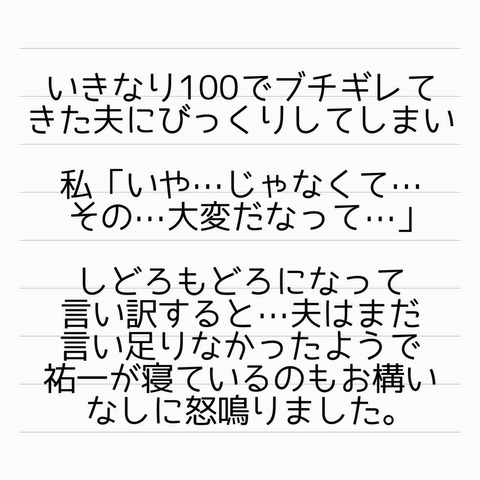 いきなり100でブチギレて
きた夫にびっくりしてしまい
私「いや…じゃなくて…
その…大変だなって…」
しどろもどろになって
言い訳すると…夫はまだ
言い足りなかったようで
祐一が寝ているのもお構い
なしに怒鳴りました。